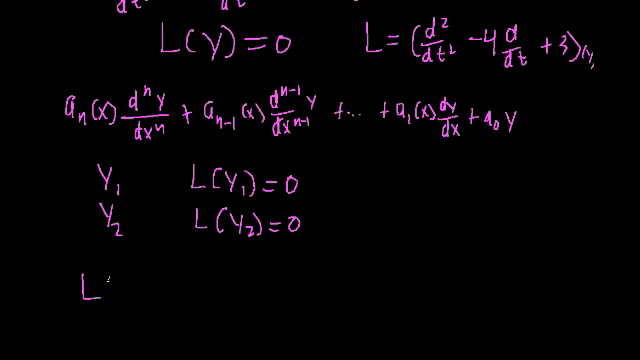 L(y) = 0 L = (d²/dt² - 4 d/dt + 3)(y)
aₙ(x) dⁿy/dxⁿ + aₙ₋₁(x) dⁿ⁻¹y/dxⁿ⁻¹ + ... + a₁(x) dy/dx + a₀ y
y₁ L(y₁) = 0
y₂ L(y₂) = 0
L